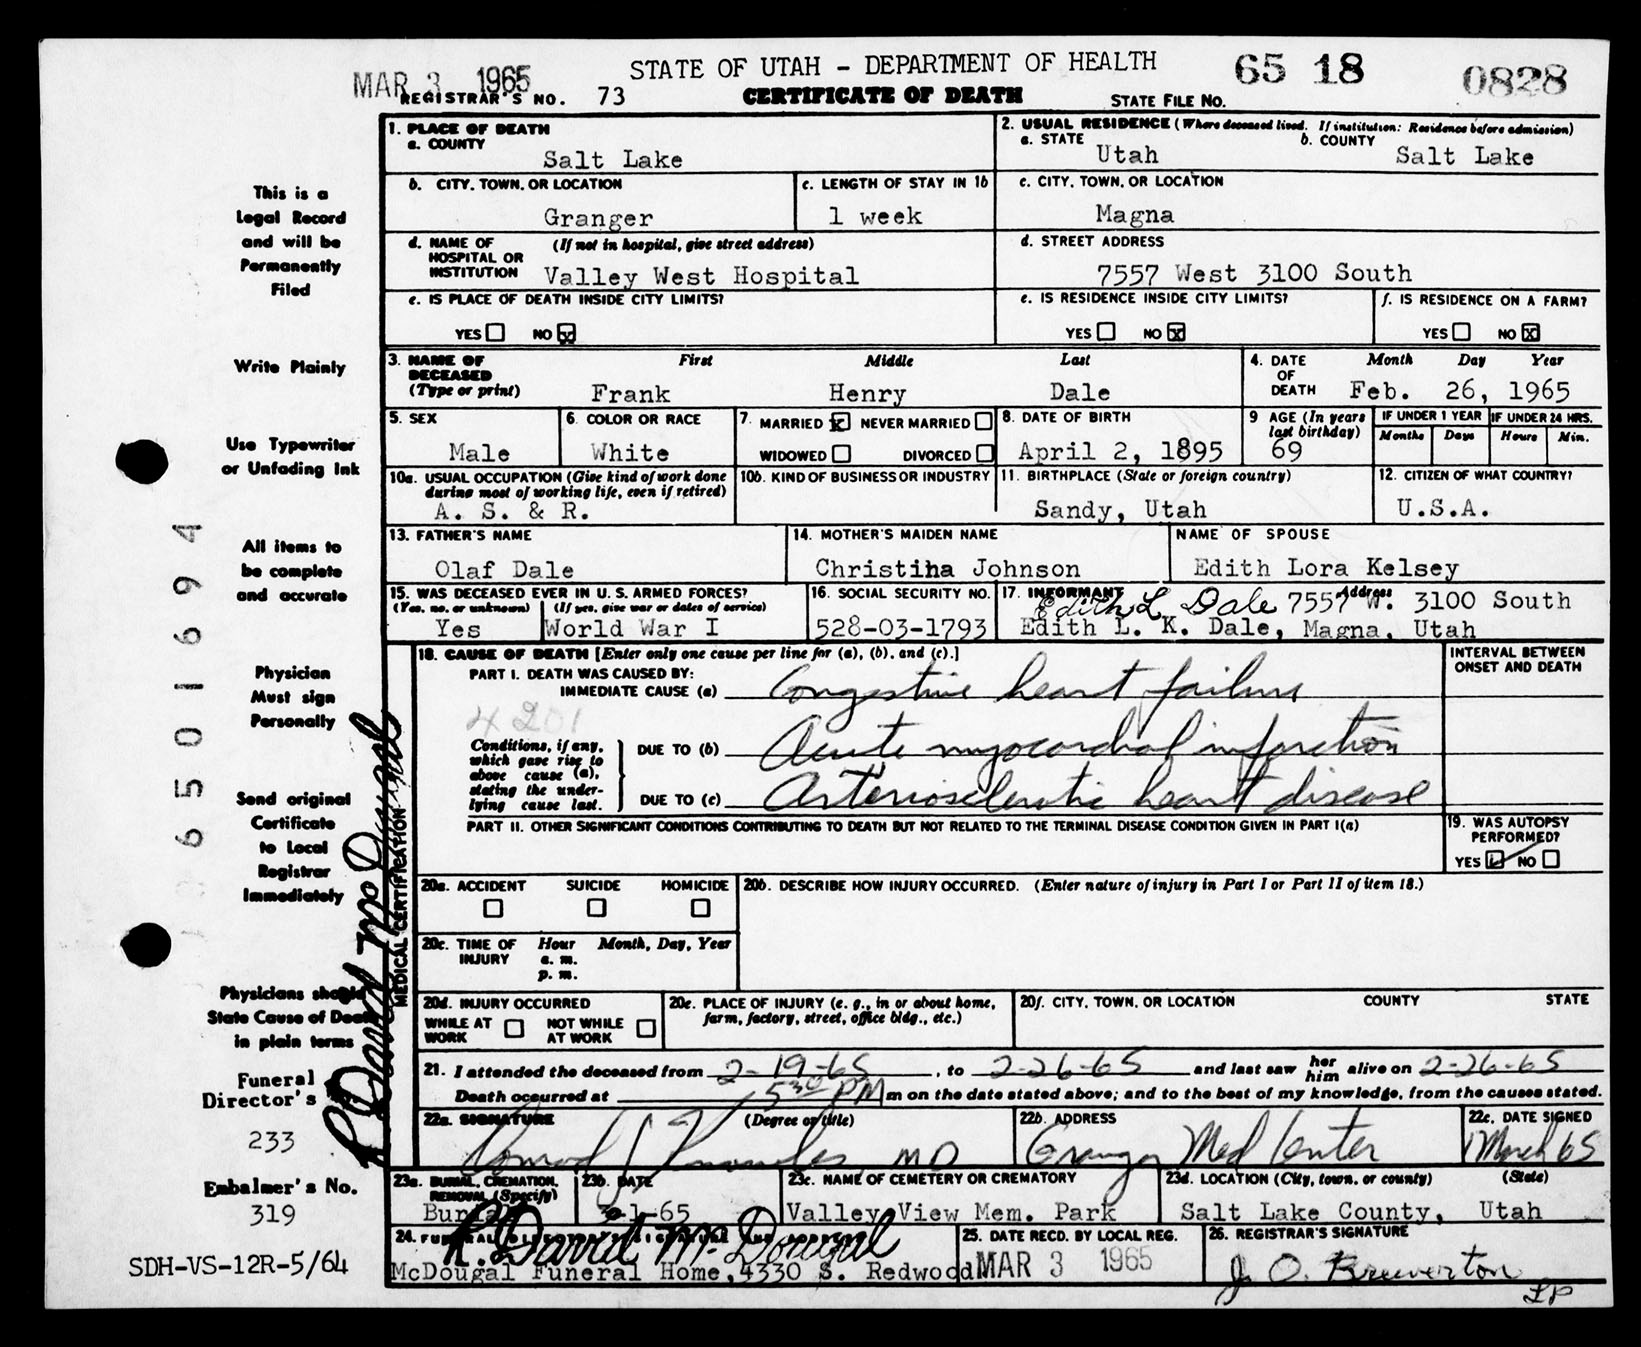 MAR 3 1965
STATE OF UTAH - DEPARTMENT OF HEALTH
65 18 0828
REGISTRAR'S NO. 73
CERTIFICATE OF DEATH
STATE FILE NO.
1. PLACE OF DEATH
a. COUNTY
Salt Lake
2. USUAL RESIDENCE (Where deceased lived. If institution: Residence before admission)
a. STATE Utah
b. COUNTY Salt Lake
b. CITY, TOWN, OR LOCATION
Granger
c. LENGTH OF STAY IN 1b
1 week
c. CITY, TOWN, OR LOCATION
Magna
d. NAME OF HOSPITAL OR INSTITUTION (If not in hospital, give street address)
Valley West Hospital
d. STREET ADDRESS
7557 West 3100 South
e. IS PLACE OF DEATH INSIDE CITY LIMITS?
YES NO X
e. IS RESIDENCE INSIDE CITY LIMITS?
YES NO X
f. IS RESIDENCE ON A FARM?
YES NO X
3. NAME OF DECEASED (Type or print)
First Middle Last
Frank Henry Dale
4. DATE OF DEATH
Month Day Year
Feb. 26, 1965
5. SEX
Male
6. COLOR OR RACE
White
7. MARRIED X NEVER MARRIED
WIDOWED DIVORCED
8. DATE OF BIRTH
April 2, 1895
9 AGE (In years last birthday)
69
IF UNDER 1 YEAR
Months Days
IF UNDER 24 HRS.
Hours Min.
10a. USUAL OCCUPATION (Give kind of work done during most of working life, even if retired)
A. S. & R.
10b. KIND OF BUSINESS OR INDUSTRY
11. BIRTHPLACE (State or foreign country)
Sandy, Utah
12. CITIZEN OF WHAT COUNTRY?
U.S.A.
13. FATHER'S NAME
Olaf Dale
14. MOTHER'S MAIDEN NAME
Christina Johnson
NAME OF SPOUSE
Edith Lora Kelsey
15. WAS DECEASED EVER IN U. S. ARMED FORCES?
(Yes, no, or unknown) (If yes, give war or dates of service)
Yes World War I
16. SOCIAL SECURITY NO.
528-03-1793
17. INFORMANT Address
Edith L. Dale 7557 W. 3100 South
Edith L. K. Dale, Magna, Utah
MEDICAL CERTIFICATION
18. CAUSE OF DEATH [Enter only one cause per line for (a), (b), and (c).]
INTERVAL BETWEEN ONSET AND DEATH
PART I. DEATH WAS CAUSED BY:
IMMEDIATE CAUSE (a) Congestive heart failure
4201
Conditions, if any, which gave rise to above cause (a), stating the underlying cause last.
DUE TO (b) Acute myocardial infarction
DUE TO (c) Arteriosclerotic heart disease
PART II. OTHER SIGNIFICANT CONDITIONS CONTRIBUTING TO DEATH BUT NOT RELATED TO THE TERMINAL DISEASE CONDITION GIVEN IN PART I(a)
19. WAS AUTOPSY PERFORMED?
YES NO
20a. ACCIDENT SUICIDE HOMICIDE
20b. DESCRIBE HOW INJURY OCCURRED. (Enter nature of injury in Part I or Part II of item 18.)
20c. TIME OF INJURY
Hour Month, Day, Year
a. m.
p. m.
20d. INJURY OCCURRED
WHILE AT WORK NOT WHILE AT WORK
20e. PLACE OF INJURY (e. g., in or about home, farm, factory, street, office bldg., etc.)
20f. CITY, TOWN, OR LOCATION COUNTY STATE
21. I attended the deceased from 2-19-65, to 2-26-65 and last saw her him alive on 2-26-65
Death occurred at 5 30 PM m on the date stated above; and to the best of my knowledge, from the causes stated.
22a. SIGNATURE (Degree or title)
MD
22b. ADDRESS
Granger Med Center
22c. DATE SIGNED
1 March 65
23a. BURIAL, CREMATION, REMOVAL (Specify)
Burial
23b. DATE
3-1-65
23c. NAME OF CEMETERY OR CREMATORY
Valley View Mem. Park
23d. LOCATION (City, town, or county) (State)
Salt Lake County, Utah
24. FUNERAL DIRECTOR'S SIGNATURE AND ADDRESS
R. David McDougal
McDougal Funeral Home, 4330 S. Redwood
25. DATE RECD. BY LOCAL REG.
MAR 3 1965
26. REGISTRAR'S SIGNATURE
J. O. Brewerton
LP
This is a
Legal Record
and will be
Permanently
Filed
Write Plainly
Use Typewriter
or Unfading Ink
All items to
be complete
and accurate
Physician
Must sign
Personally
Send original
Certificate
to Local
Registrar
Immediately
Physicians should
State Cause of Death
in plain terms
Funeral
Director's
233
Embalmer's No.
319
SDH-VS-12R-5/64
6501694
R. David McDougal